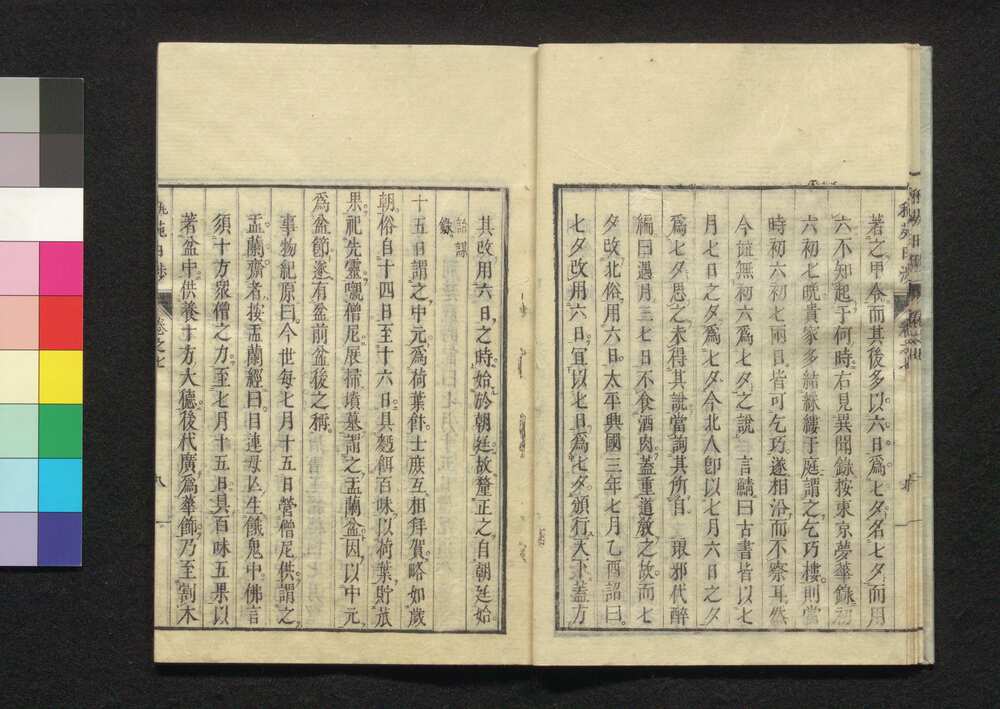 著之甲令而其後多以六日爲七夕名七夕而用
六不知起于何時右見異聞錄按東京夢華錄初
六初七晩貴家多結綵縷于庭謂之乞巧樓則當
時初六初七兩日皆可乞巧遂相沿而不察耳然
今並無初六爲七夕之說　言鯖曰古書皆以七
月七日之夕爲七夕今北人卽以七月六日之夕
爲七夕思之未得其說當詢其所自　琅邪代醉
編曰遇月三七日不食酒肉蓋重道敎之故而七
夕改北俗用六日太平興國三年七月乙酉詔曰
七夕改用六日宜以七日爲七夕頒行天下蓋方
其改用六日之時始於朝廷故釐正之自朝廷始
詒謀
錄
十五日謂之中元爲荷葉飰士庻互相拜賀略如歲
朝俗自十四日至十六日具麪餌百味以荷葉貯菰
果祀先靈嚫僧尼展掃墳墓謂之盂蘭盆因以中元
爲盆節遂有盆前盆後之稱
事物紀原曰今世每七月十五日營僧尼供謂之
盂蘭齋者按盂蘭經曰目連母亾生餓鬼中佛言
須十方衆僧之力至七月十五日具百味五果以
著盆中供養十方大德後代廣爲華飾乃至割木
卷之七
八